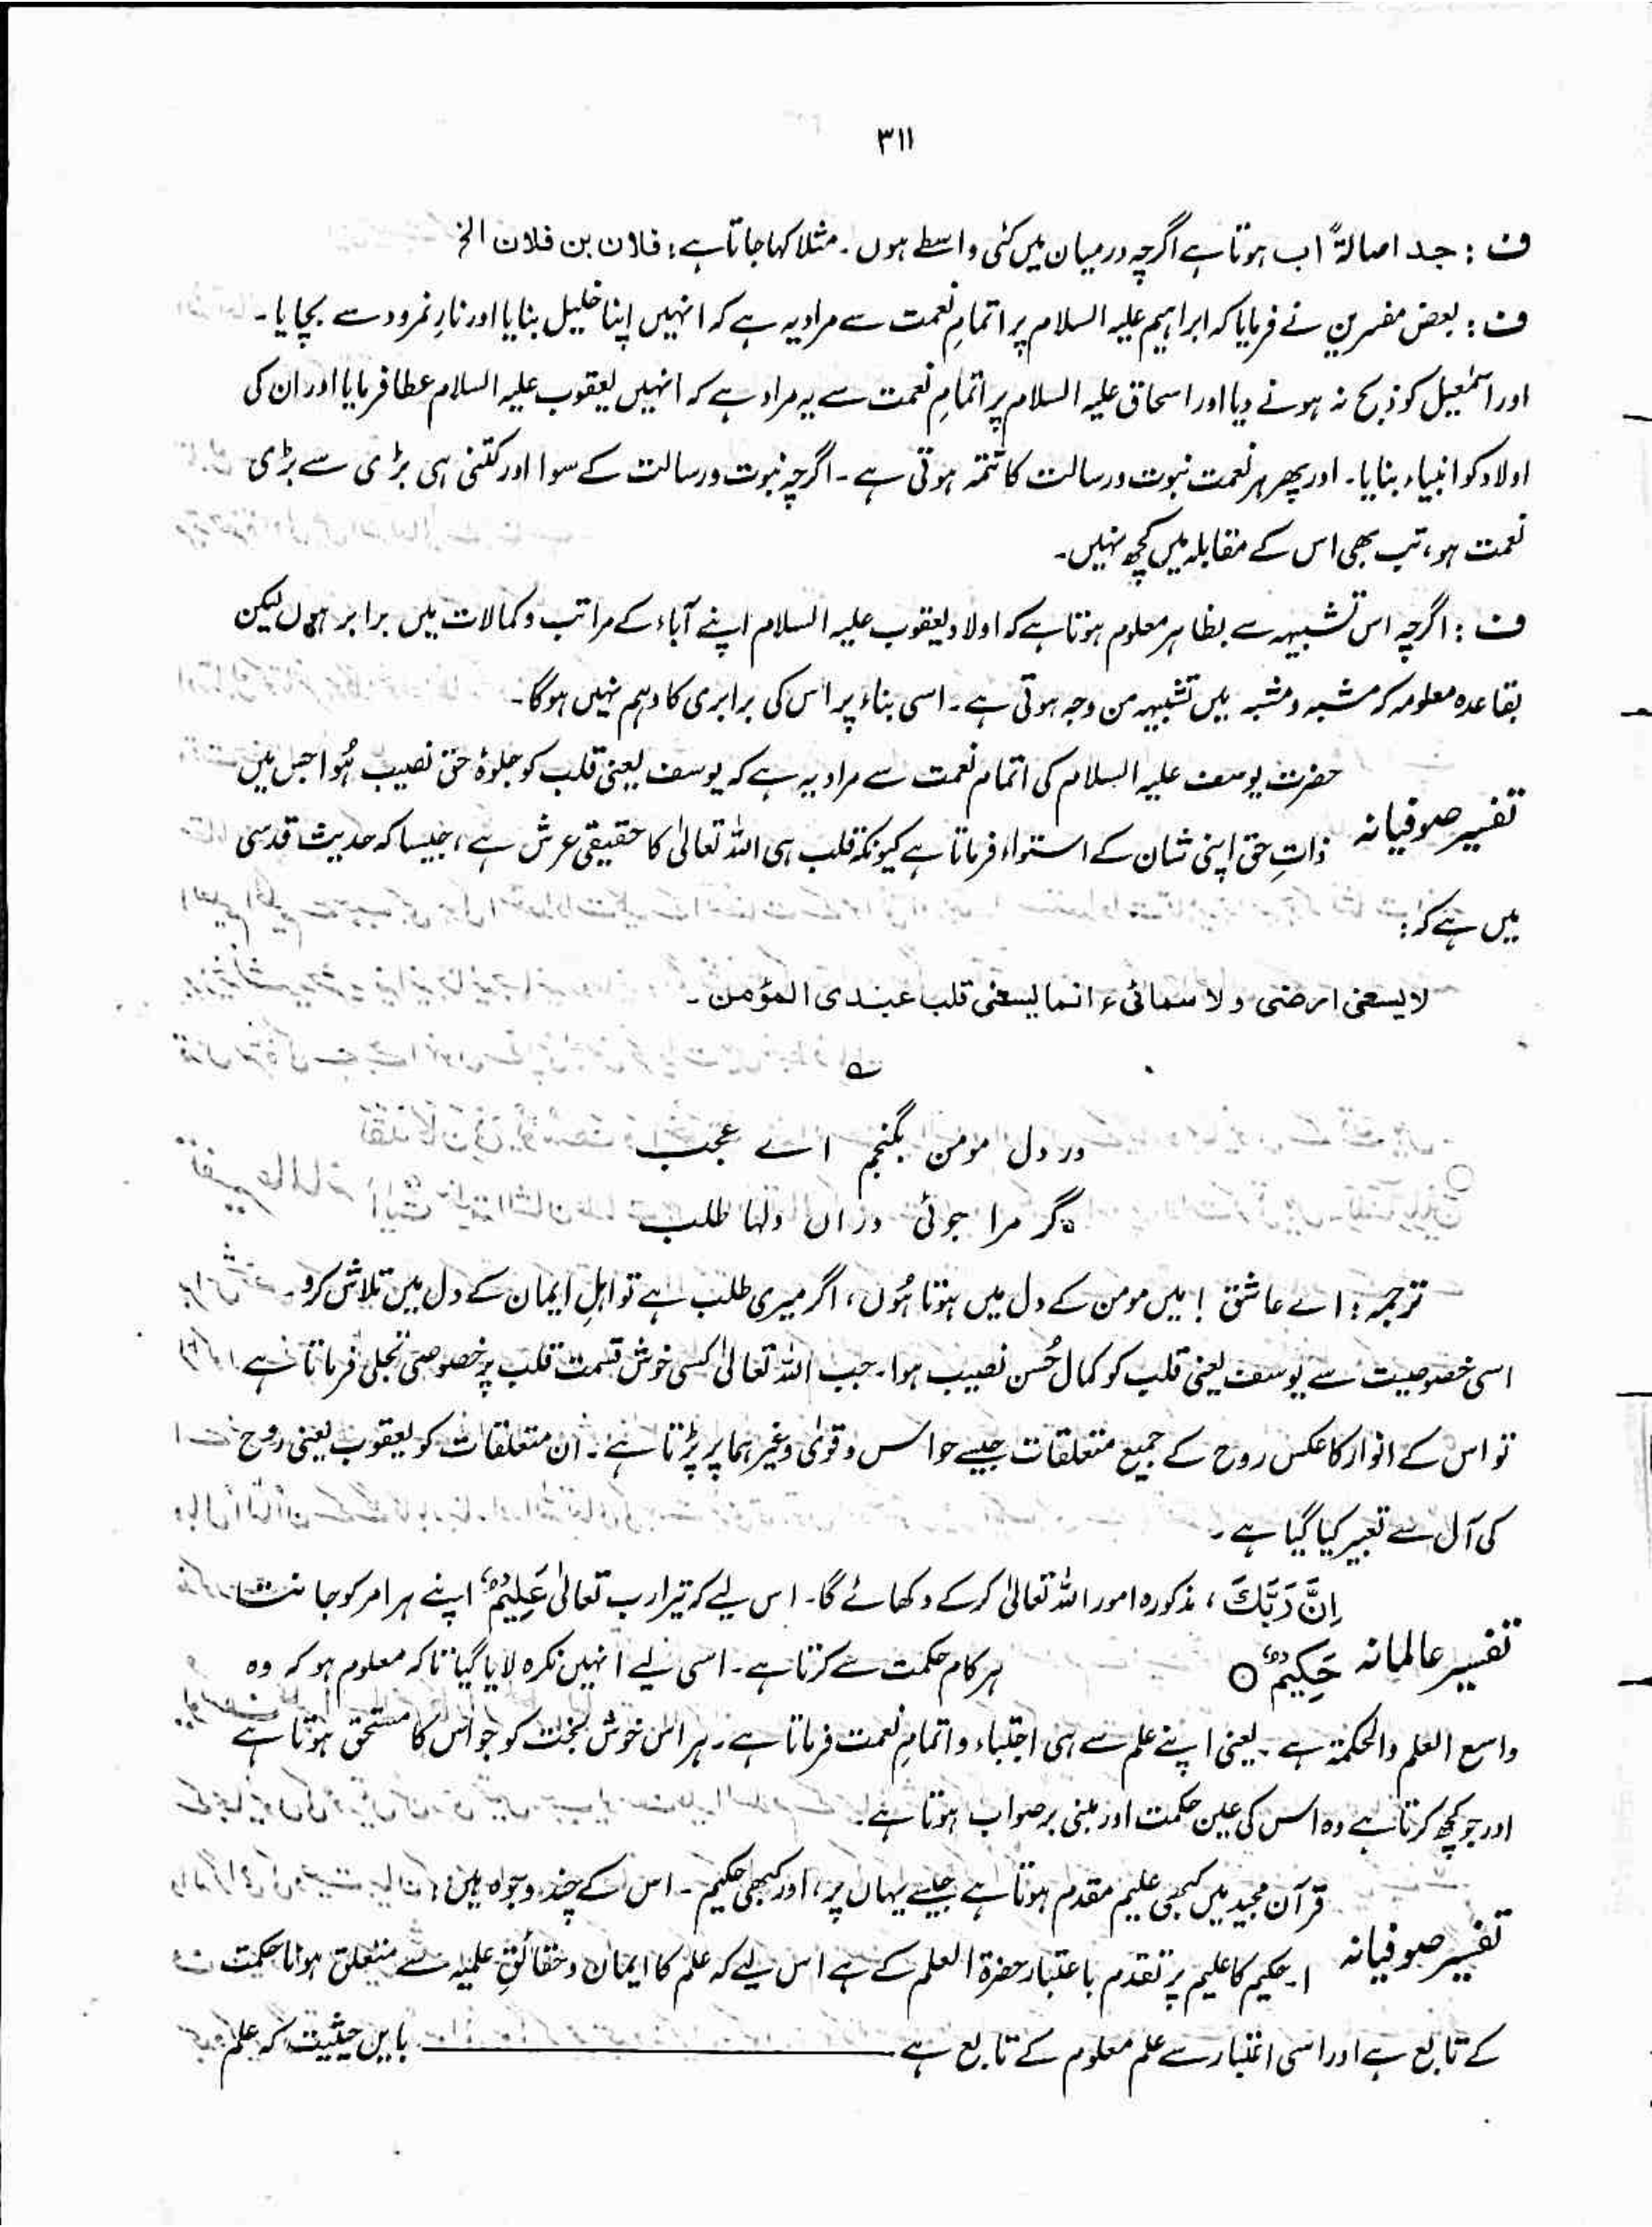 ۳۱۱
ف : جد اصالۃً اب ہوتا ہے اگرچہ درمیان میں کئی واسطے ہوں ۔ مثلا کہا جاتا ہے : فلان بن فلان الخ
ف : بعض مفسرین نے فرمایا کہ ابراہیم علیہ السلام پر اتمامِ نعمت سے مراد یہ ہے کہ انہیں اپنا خلیل بنایا اور نارِ نمرود سے بچایا ۔
اور اسمٰعیل کو ذبح نہ ہونے دیا اور اسحاق علیہ السلام پر اتمامِ نعمت سے یہ مراد ہے کہ انہیں یعقوب علیہ السلام عطا فرمایا اور ان کی
اولاد کو انبیاء بنایا ۔ اور پھر ہر نعمت نبوت ورسالت کا تتمہ ہوتی ہے ۔ اگرچہ نبوت ورسالت کے سوا اور کتنی ہی بڑی سے بڑی
نعمت ہو ، تب بھی اس کے مقابلہ میں کچھ نہیں ۔
ف : اگرچہ اس تشبیہہ سے بظاہر معلوم ہوتا ہے کہ اولاد یعقوب علیہ السلام اپنے آباء کے مراتب وکمالات میں برابر ہوں لیکن
بقاعدہ معلومہ کہ مشبہ ومشبہ میں تشبیہہ من وجہ ہوتی ہے ۔ اسی بناء پر اس کی برابری کا وہم نہیں ہوگا ۔
حضرت یوسف علیہ السلام کی اتمام نعمت سے مراد یہ ہے کہ یوسف یعنی قلب کو جلوۂ حق نصیب ہُوا جس میں
تفسیر صوفیانہ ذاتِ حق اپنی شان کے استواء فرماتا ہے کیونکہ قلب ہی اللہ تعالٰی کا حقیقی عرش ہے ، جیسا کہ حدیث قدسی
میں ہے کہ :
لا یسعنی ارضی و لا سمائی ء انما یسعنی قلب عبدی المؤمن ۔
؎
در دل مومن بگنجم اے عجب
گر مرا جوئی دراں دلہا طلب
ترجمہ : اے عاشق ! میں مومن کے دل میں ہوتا ہُوں ، اگر میری طلب ہے تو اہلِ ایمان کے دل میں تلاش کرو ۔
اسی خصوصیت سے یوسف یعنی قلب کو کمال حُسن نصیب ہوا ۔ جب اللہ تعالیٰ کسی خوش قسمت قلب پر خصوصی تجلی فرماتا ہے
تو اس کے انوار کا عکس روح کے جمیع متعلقات جیسے حواس و قوٰی وغیرہما پر پڑتا ہے ۔ ان متعلقات کو یعقوب یعنی روح
کی آل سے تعبیر کیا گیا ہے ۔
اِنَّ رَبَّكَ ، مذکورہ امور اللہ تعالیٰ کر کے دکھائے گا ۔ اس لیے کہ تیرا رب تعالیٰ عَلِیْمٌ اپنے ہر امر کو جانتا
تفسیر عالمانہ حَكِيْمٌ ○ ہر کام حکمت سے کرتا ہے ۔ اسی لیے انہیں نکرہ لایا گیا تاکہ معلوم ہو کہ وہ
واسع العلم والحکمۃ ہے ۔ یعنی اپنے علم سے ہی اجتباء و اتمامِ نعمت فرماتا ہے ۔ ہر اس خوش بخت کو جو اس کا مستحق ہوتا ہے
اور جو کچھ کرتا ہے وہ اس کی عین حکمت اور مبنی بر صواب ہوتا ہے ۔
قرآن مجید میں کبھی علیم مقدم ہوتا ہے جیسے یہاں پر ، اور کبھی حکیم ۔ اس کے چند وجوہ ہیں :
تفسیر صوفیانہ ۱ ۔ حکیم کا علیم پر تقدم باعتبار حضرۃ العلم کے ہے اس لیے کہ علم کا ایمان وحقائقِ علمیہ سے متعلق ہونا حکمت
کے تابع ہے اور اسی اعتبار سے علم معلوم کے تابع ہے ۔ بایں حیثیت کہ علم